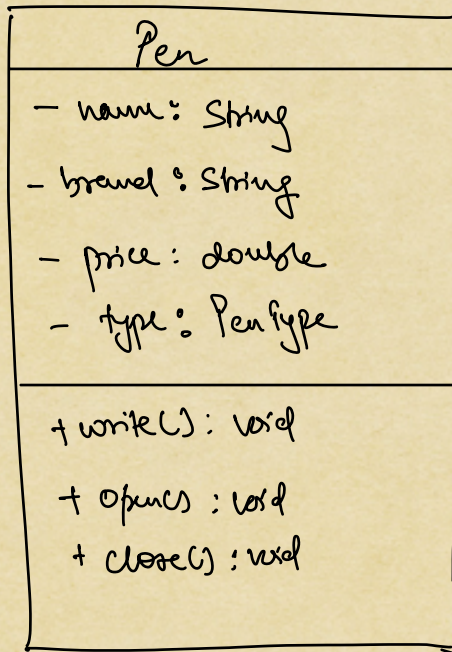 Pen
- name: String
- brand: String
- price: double
- type: PenType
+ write(): void
+ open(): void
+ close(): void